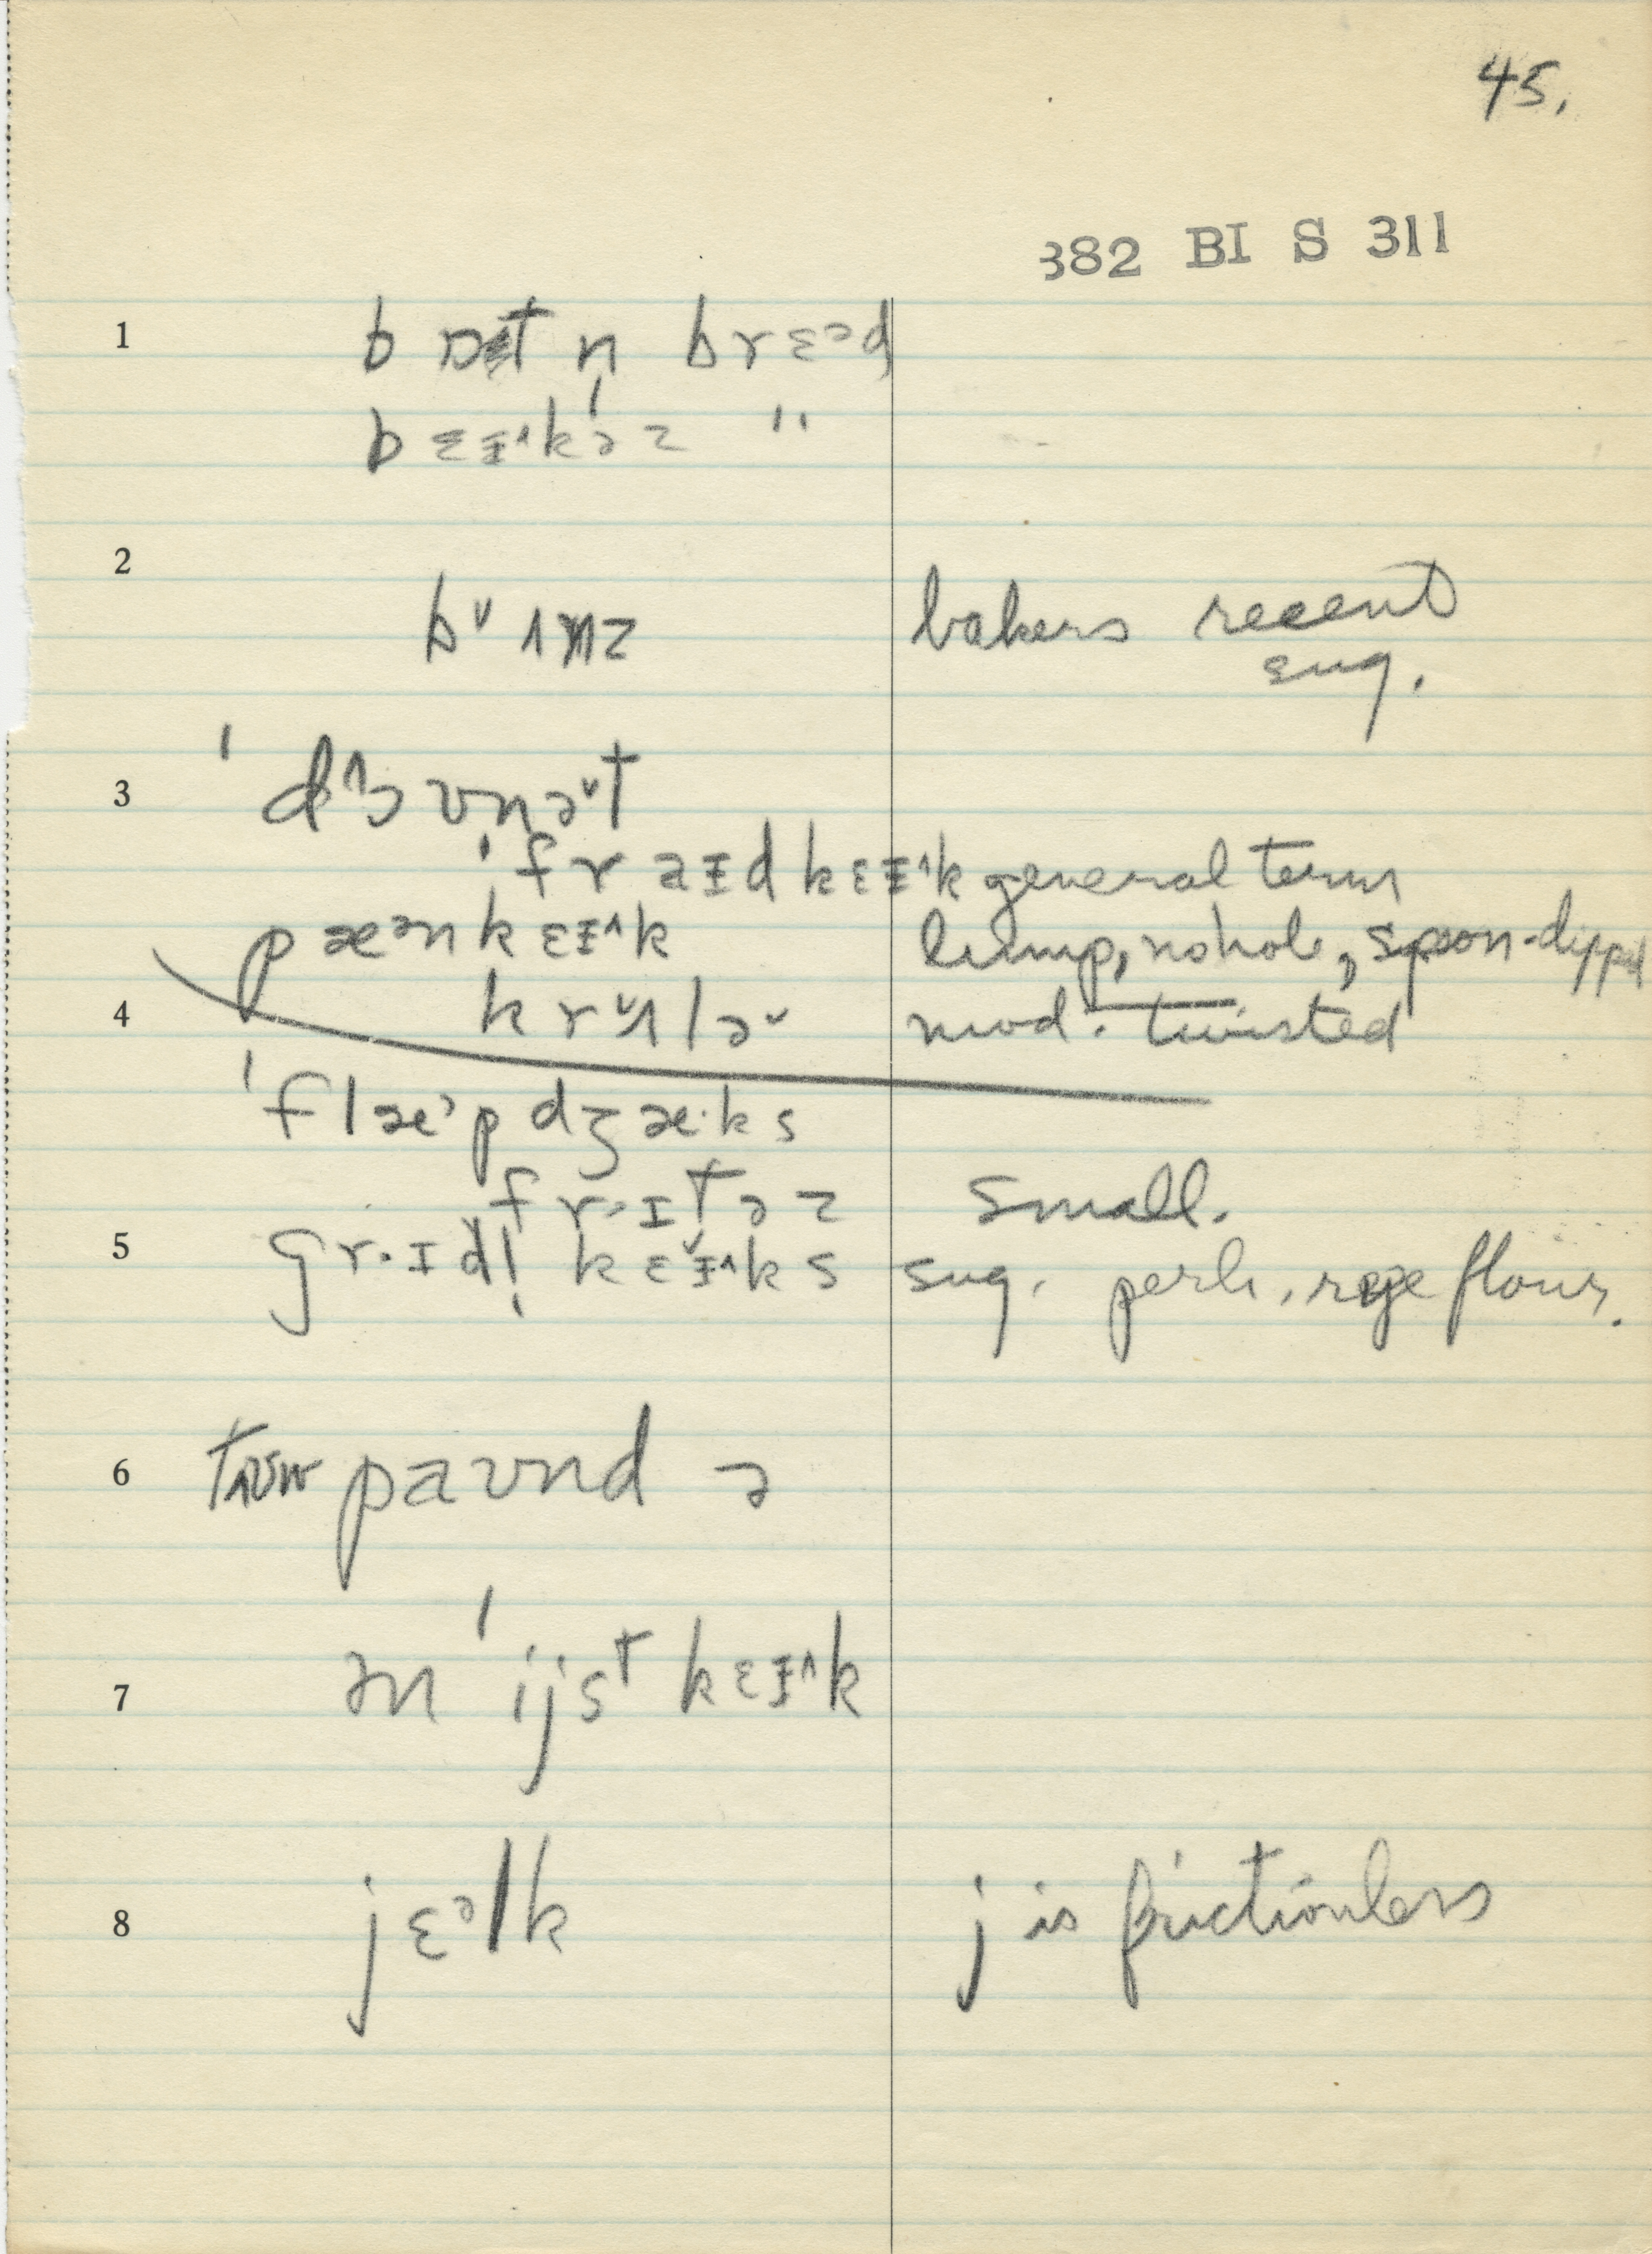 45.
382 BI S 311
1 bɒtn̩ brɛᵊd
bɛɪ^kəz "
2 bˇʌnz bakers recent
sug.
3 'd^ɔʊnəˇt
'fraɪdkɛɪ^k general term
pæᵊnkɛɪ^k lump, no hole, spoon-dipped
4 krˇʌləˇ mod. twisted
'flæᵊpdʒæ·ks
fr·ɪtəz small.
5 gr·ɪdl̩ kɛˇɪ^ks sug. perh. rye flour.
6 paʊnd ə
7 ən 'ijst kɛɪ^k
8 jɛᵊlk j is frictionless